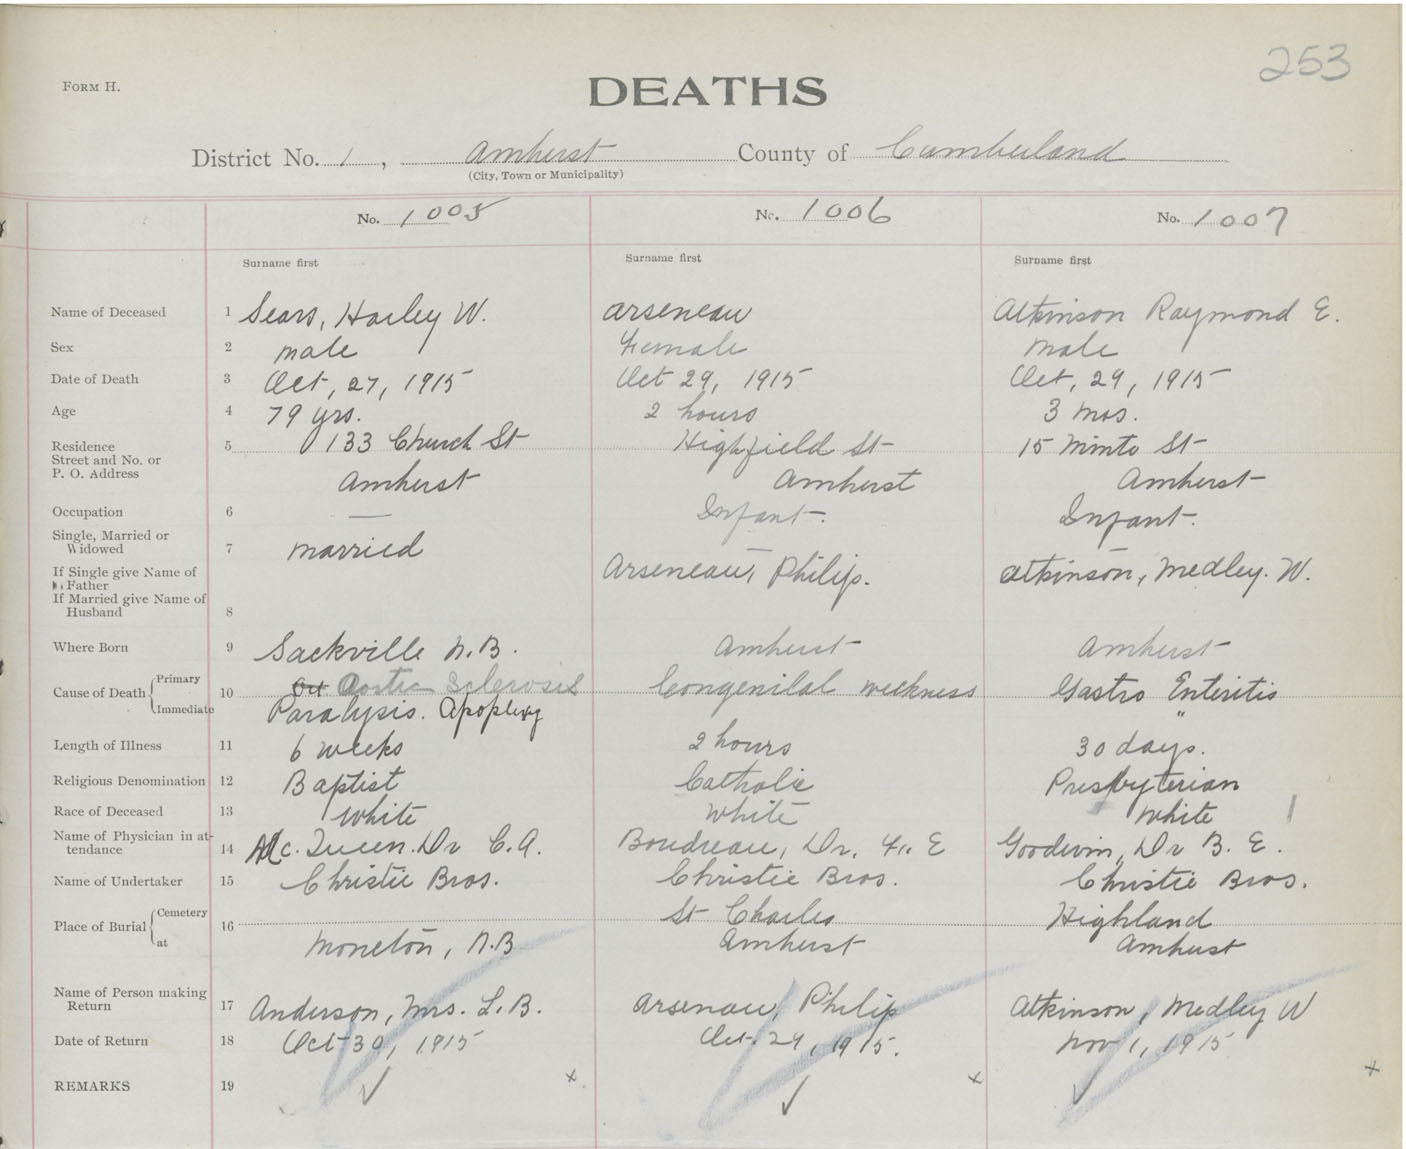 253
FORM H.
DEATHS
District No. 1, Amherst County of Cumberland
(City, Town or Municipality)
No. 1005 No. 1006 No. 1007
Surname first Surname first Surname first
Name of Deceased 1 Sears, Harley W. Arseneau Atkinson Raymond E.
Sex 2 male Female male
Date of Death 3 Oct, 27, 1915 Oct 29, 1915 Oct, 29, 1915
Age 4 79 yrs. 2 hours 3 mos.
Residence 5 133 Church St Highfield St 15 Minto St
Street and No. or
P. O. Address Amherst Amherst Amherst
Occupation 6 — Infant. Infant.
Single, Married or
Widowed 7 married
If Single give Name of
Father Arseneau, Philip. Atkinson, Medley. W.
If Married give Name of
Husband 8
Where Born 9 Sackville N.B. Amherst Amherst
Cause of Death Primary 10 Aortic Sclerosis Congenital weekness Gastro Enteritis
Immediate Paralysis. Apoplexy "
Length of Illness 11 6 weeks 2 hours 30 days.
Religious Denomination 12 Baptist Catholic Presbyterian
Race of Deceased 13 White White White
Name of Physician in at-
tendance 14 Mc. Queen. Dr C. A. Boudreau, Dr. F. E Goodwin, Dr B. E.
Name of Undertaker 15 Christie Bros. Christie Bros. Christie Bros.
Place of Burial Cemetery 16 St Charles Highland
at Moncton, N.B Amherst Amherst
Name of Person making
Return 17 Anderson, Mrs. L. B. Arsenau, Philip Atkinson, Medley W
Date of Return 18 Oct 30, 1915 Oct. 29, 1915. Nov 1, 1915
REMARKS 19 ✓ x ✓ x ✓ x